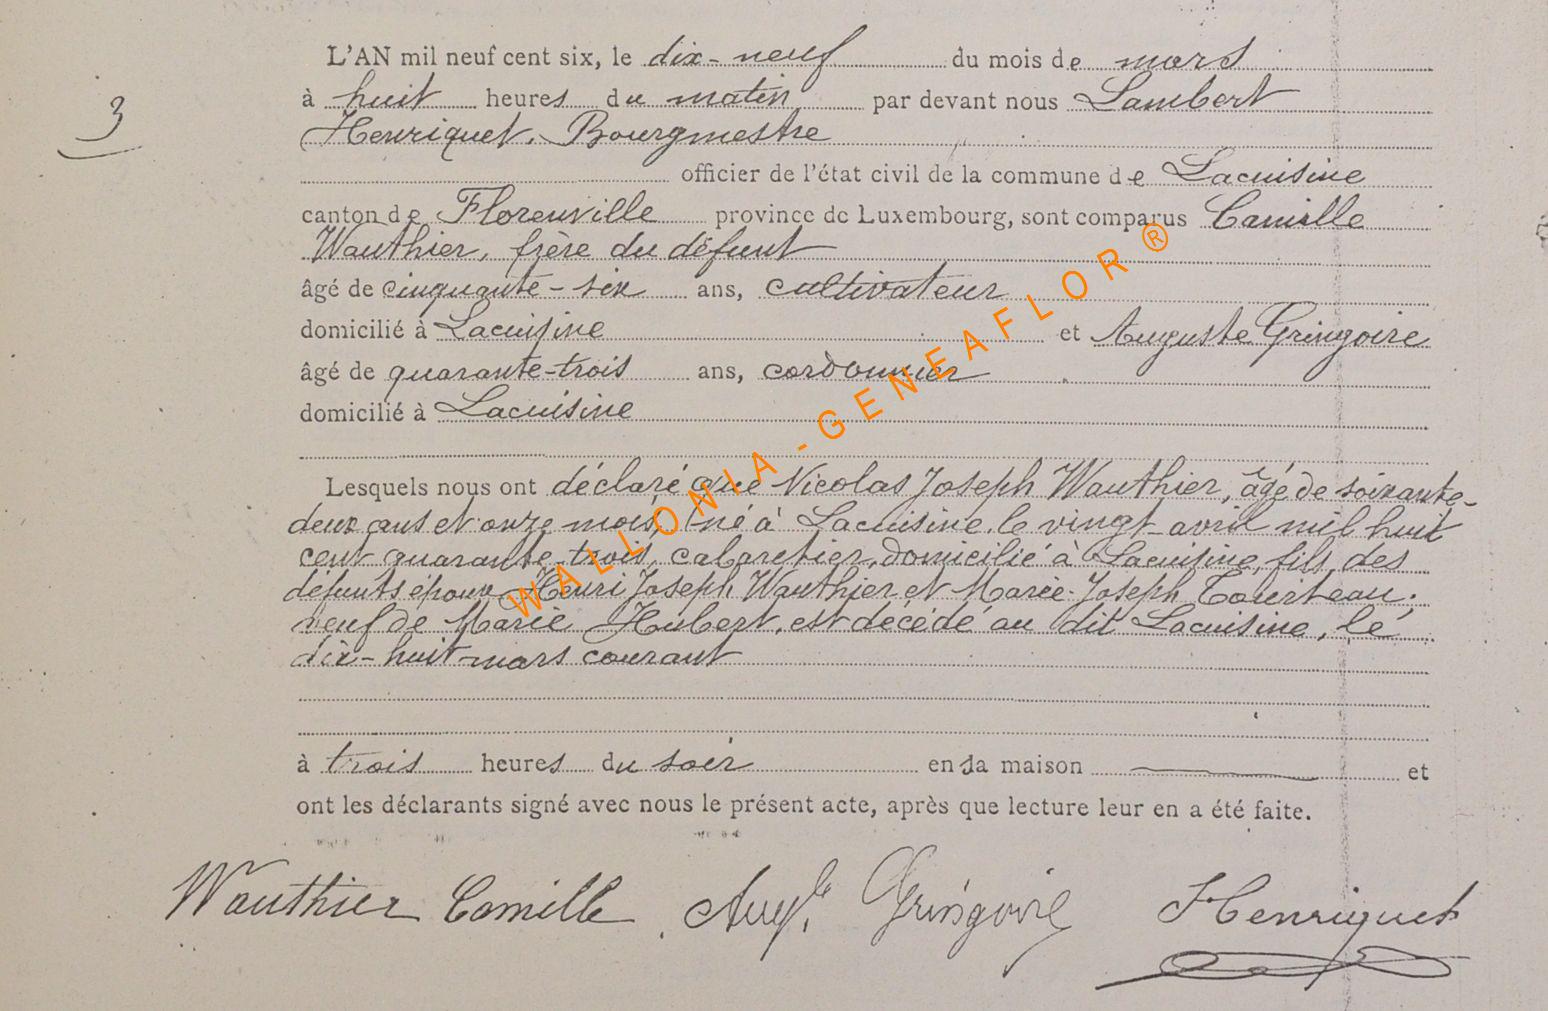 3
L'AN mil neuf cent six, le dix-neuf du mois de mars
à huit heures du matin, par devant nous Lambert
Henriquet, Bourgmestre
officier de l'état civil de la commune de Lacuisine
canton de Florenville province de Luxembourg, sont comparus Camille
Wauthier, frère du défunt
âgé de cinquante-six ans, cultivateur
domicilié à Lacuisine et Auguste Gringoire
âgé de quarante-trois ans, cordonnier
domicilié à Lacuisine
Lesquels nous ont déclaré que Nicolas Joseph Wauthier, âgé de soixante-
deux ans et onze mois, né à Lacuisine, le vingt avril mil huit
cent quarante-trois, cabaretier, domicilié à Lacuisine, fils des
défunts époux Henri Joseph Wauthier et Marie-Joseph
veuf de Marie Hubert, est décédé au dit Lacuisine, le
dix-huit mars courant
à trois heures du soir en sa maison et
ont les déclarants signé avec nous le présent acte, après que lecture leur en a été faite.
Wauthier Camille Aug.te Gringoire Henriquet
WALLONIA-GENEAFLOR ®